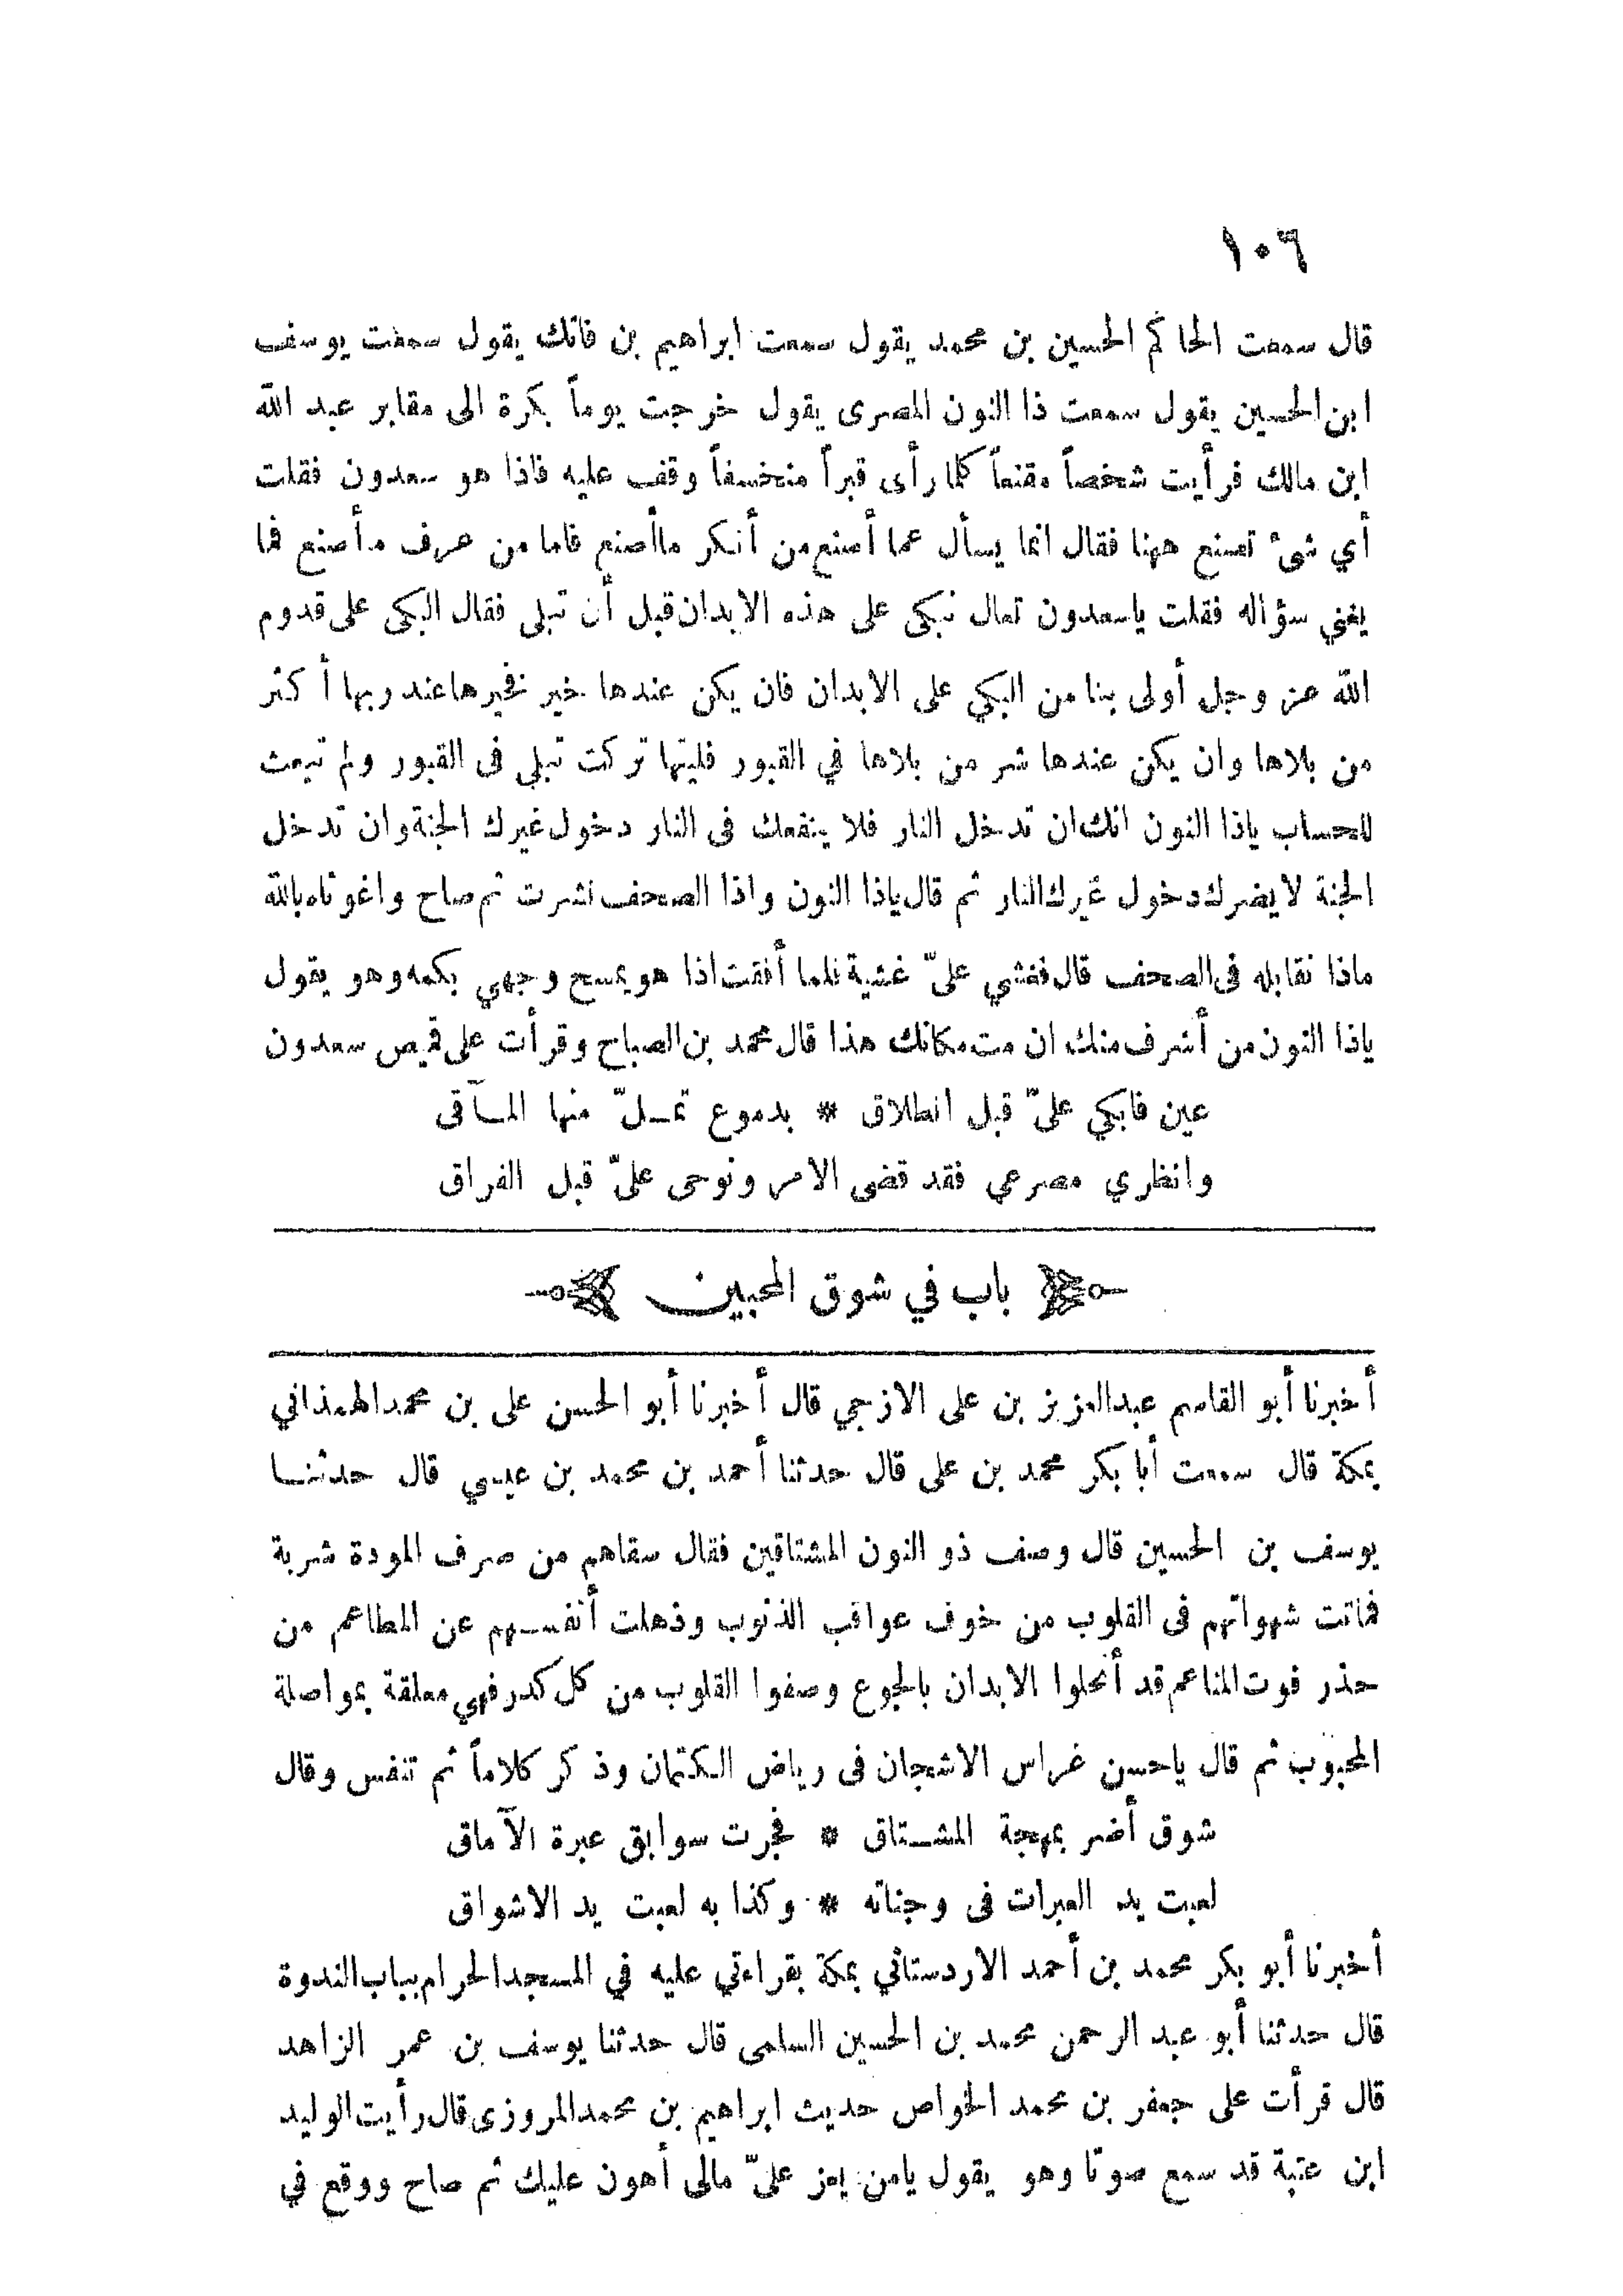 ١٠٦
قال سمعت الحاكم الحسين بن محمد يقول سمعت ابراهيم بن فاتك يقول سمعت يوسف
ابن الحسين يقول سمعت ذا النون المصرى يقول خرجت يوماً بكرة الى مقابر عبد الله
ابن مالك فرأيت شخصاً مقنعاً كلما رأى قبراً منخسفاً وقف عليه فاذا هو سعدون فقلت
أي شئ تصنع ههنا فقال انما يسأل عما أصنع من أنكر ماأصنع فاما من عرف مأصنع فما
يغني سؤاله فقلت ياسعدون تعال نبكى على هذه الابدان قبل أن تبلى فقال البكى على قدوم
الله عز وجل أولى بنا من البكي على الابدان فان يكن عندها خير فخيرها عند ربها أكثر
من بلاها وان يكن عندها شر من بلاها في القبور فليتها تركت تبلي فى القبور ولم تبعث
للحساب ياذا النون انك ان تدخل النار فلا ينفعك فى النار دخول غيرك الجنة وان تدخل
الجنة لايضرك دخول غيرك النار ثم قال ياذا النون واذا الصحف نشرت ثم صاح واغوثاه بالله
ماذا نقابله فى الصحف قال فغشي علىّ غشية فلما أفقت اذا هو يمسح وجهي بكمه وهو يقول
ياذا النون من أشرف منك ان مت مكانك هذا قال محمد بن الصباح وقرأت على قميص سعدون
عين فابكي علىّ قبل انطلاق * بدموع تمـلّ منها المـآقى
وانظري مصرعي فقد قضى الامر ونوحى علىّ قبل الفراق
باب في شوق المحبين
أخبرنا أبو القاسم عبد العزيز بن على الازجي قال أخبرنا أبو الحسن على بن محمد الهمذاني
بمكة قال سمعت أبا بكر محمد بن على قال حدثنا أحمد بن محمد بن عيسي قال حدثنا
يوسف بن الحسين قال وصف ذو النون المشتاقين فقال سقاهم من صرف المودة شربة
فماتت شهواتهم فى القلوب من خوف عواقب الذنوب وذهلت أنفسهم عن المطاعم من
حذر فوت المناعم قد أنحلوا الابدان بالجوع وصفوا القلوب من كل كدر فهي معلقة بمواصلة
المحبوب ثم قال ياحسن غراس الاشجان فى رياض الكتمان وذكر كلاماً ثم تنفس وقال
شوق أضر بمهجة المشـتاق * فجرت سوابق عبرة الآماقى
لعبت يد العبرات فى وجناته * وكذا به لعبت يد الاشواق
أخبرنا أبو بكر محمد بن أحمد الاردستاني بمكة بقراءتي عليه في المسجد الحرام بباب الندوة
قال حدثنا أبو عبد الرحمن محمد بن الحسين السلمى قال حدثنا يوسف بن عمر الزاهد
قال قرأت على جعفر بن محمد الخواص حديث ابراهيم بن محمد المروزى قال رأيت الوليد
ابن عتبة قد سمع صوتا وهو يقول يامن يعز علىّ مالى أهون عليك ثم صاح ووقع في